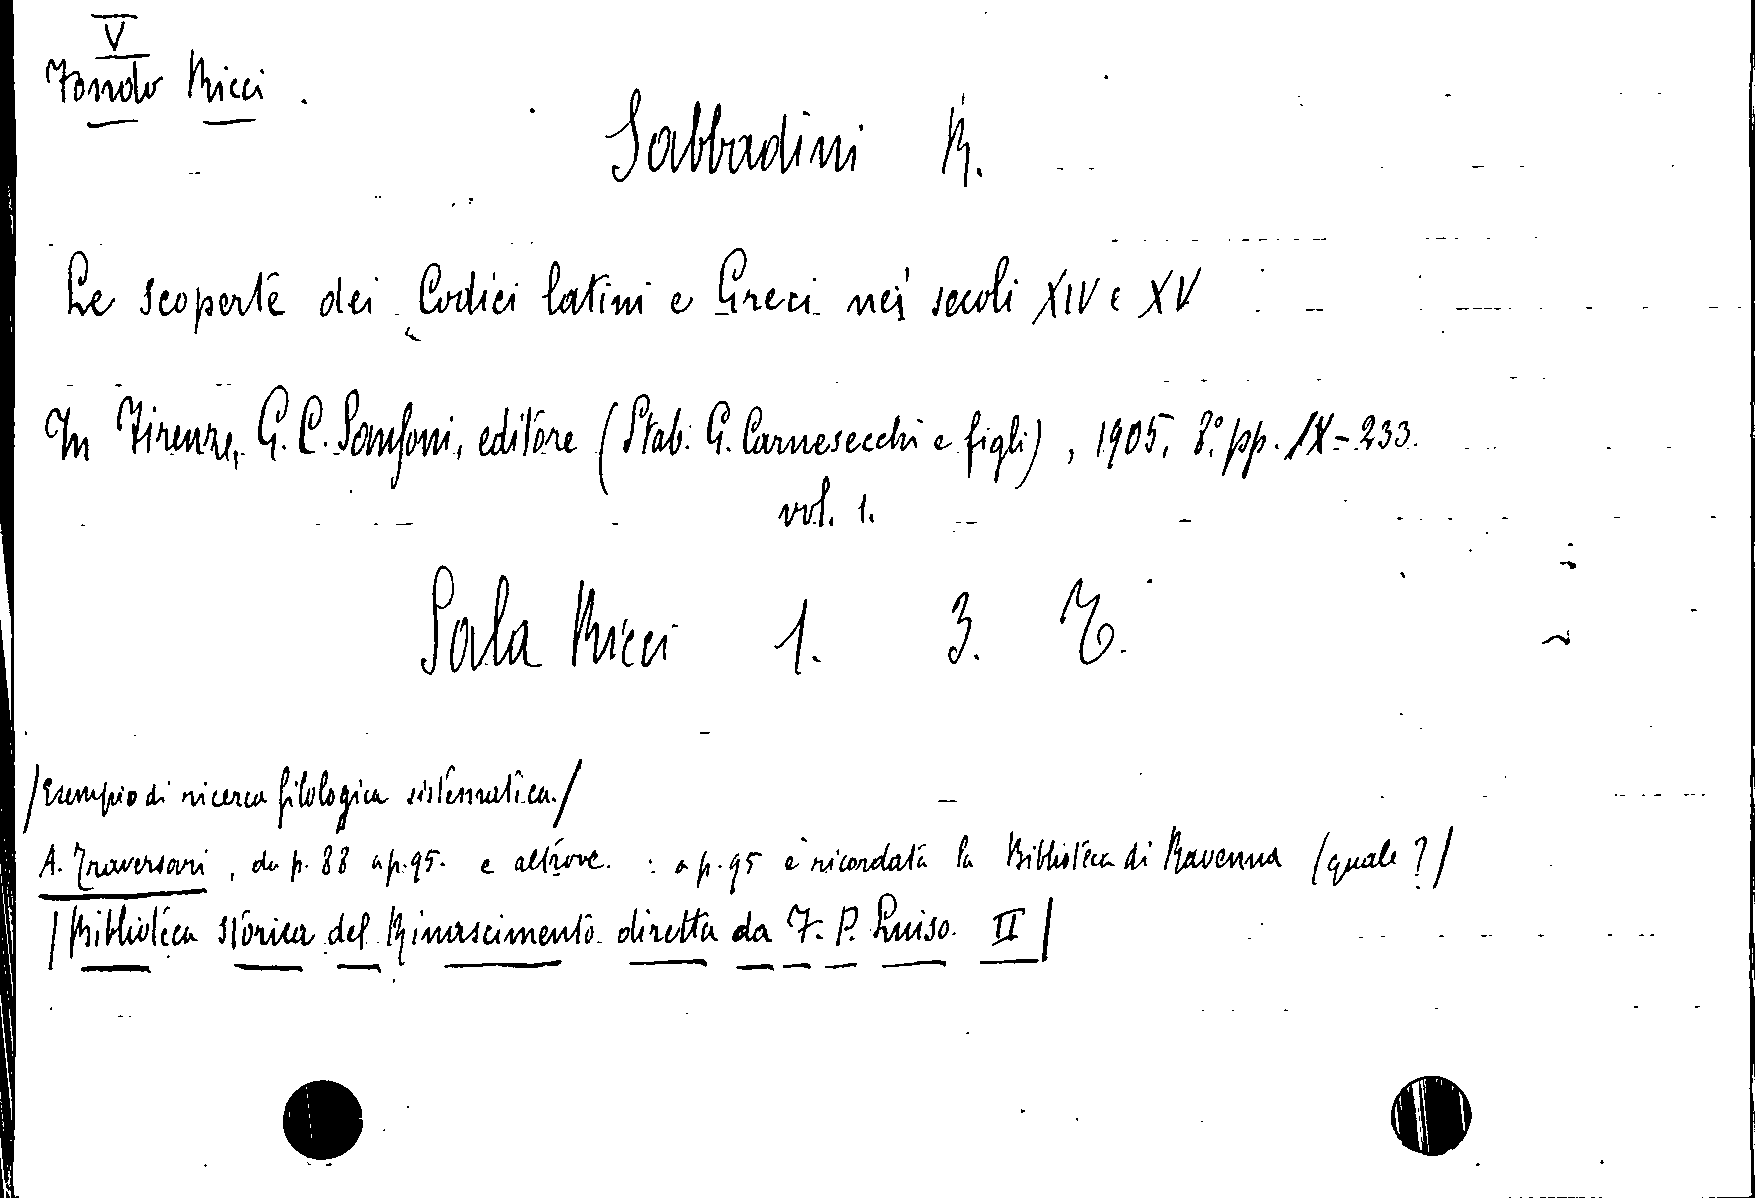 V
Fondo Ricci.
Sabbadini R.
Le scoperte dei Codici latini e Greci nei secoli XIV e XV
In Firenze, G. C. Sansoni, editore (Stab. G. Carnesecchi e figli), 1905, 8.° pp. IX-233.
vol. 1.
Sala Ricci 1. 3. Z.
/Esempio di ricerca filologica sistematica./
A. Traversari, da p. 88 a p. 95. e altrove. : a p. 95 è ricordata la Biblioteca di Ravenna (quale?/
/Biblioteca storica del Rinascimento diretta da F. P. Luiso. II/